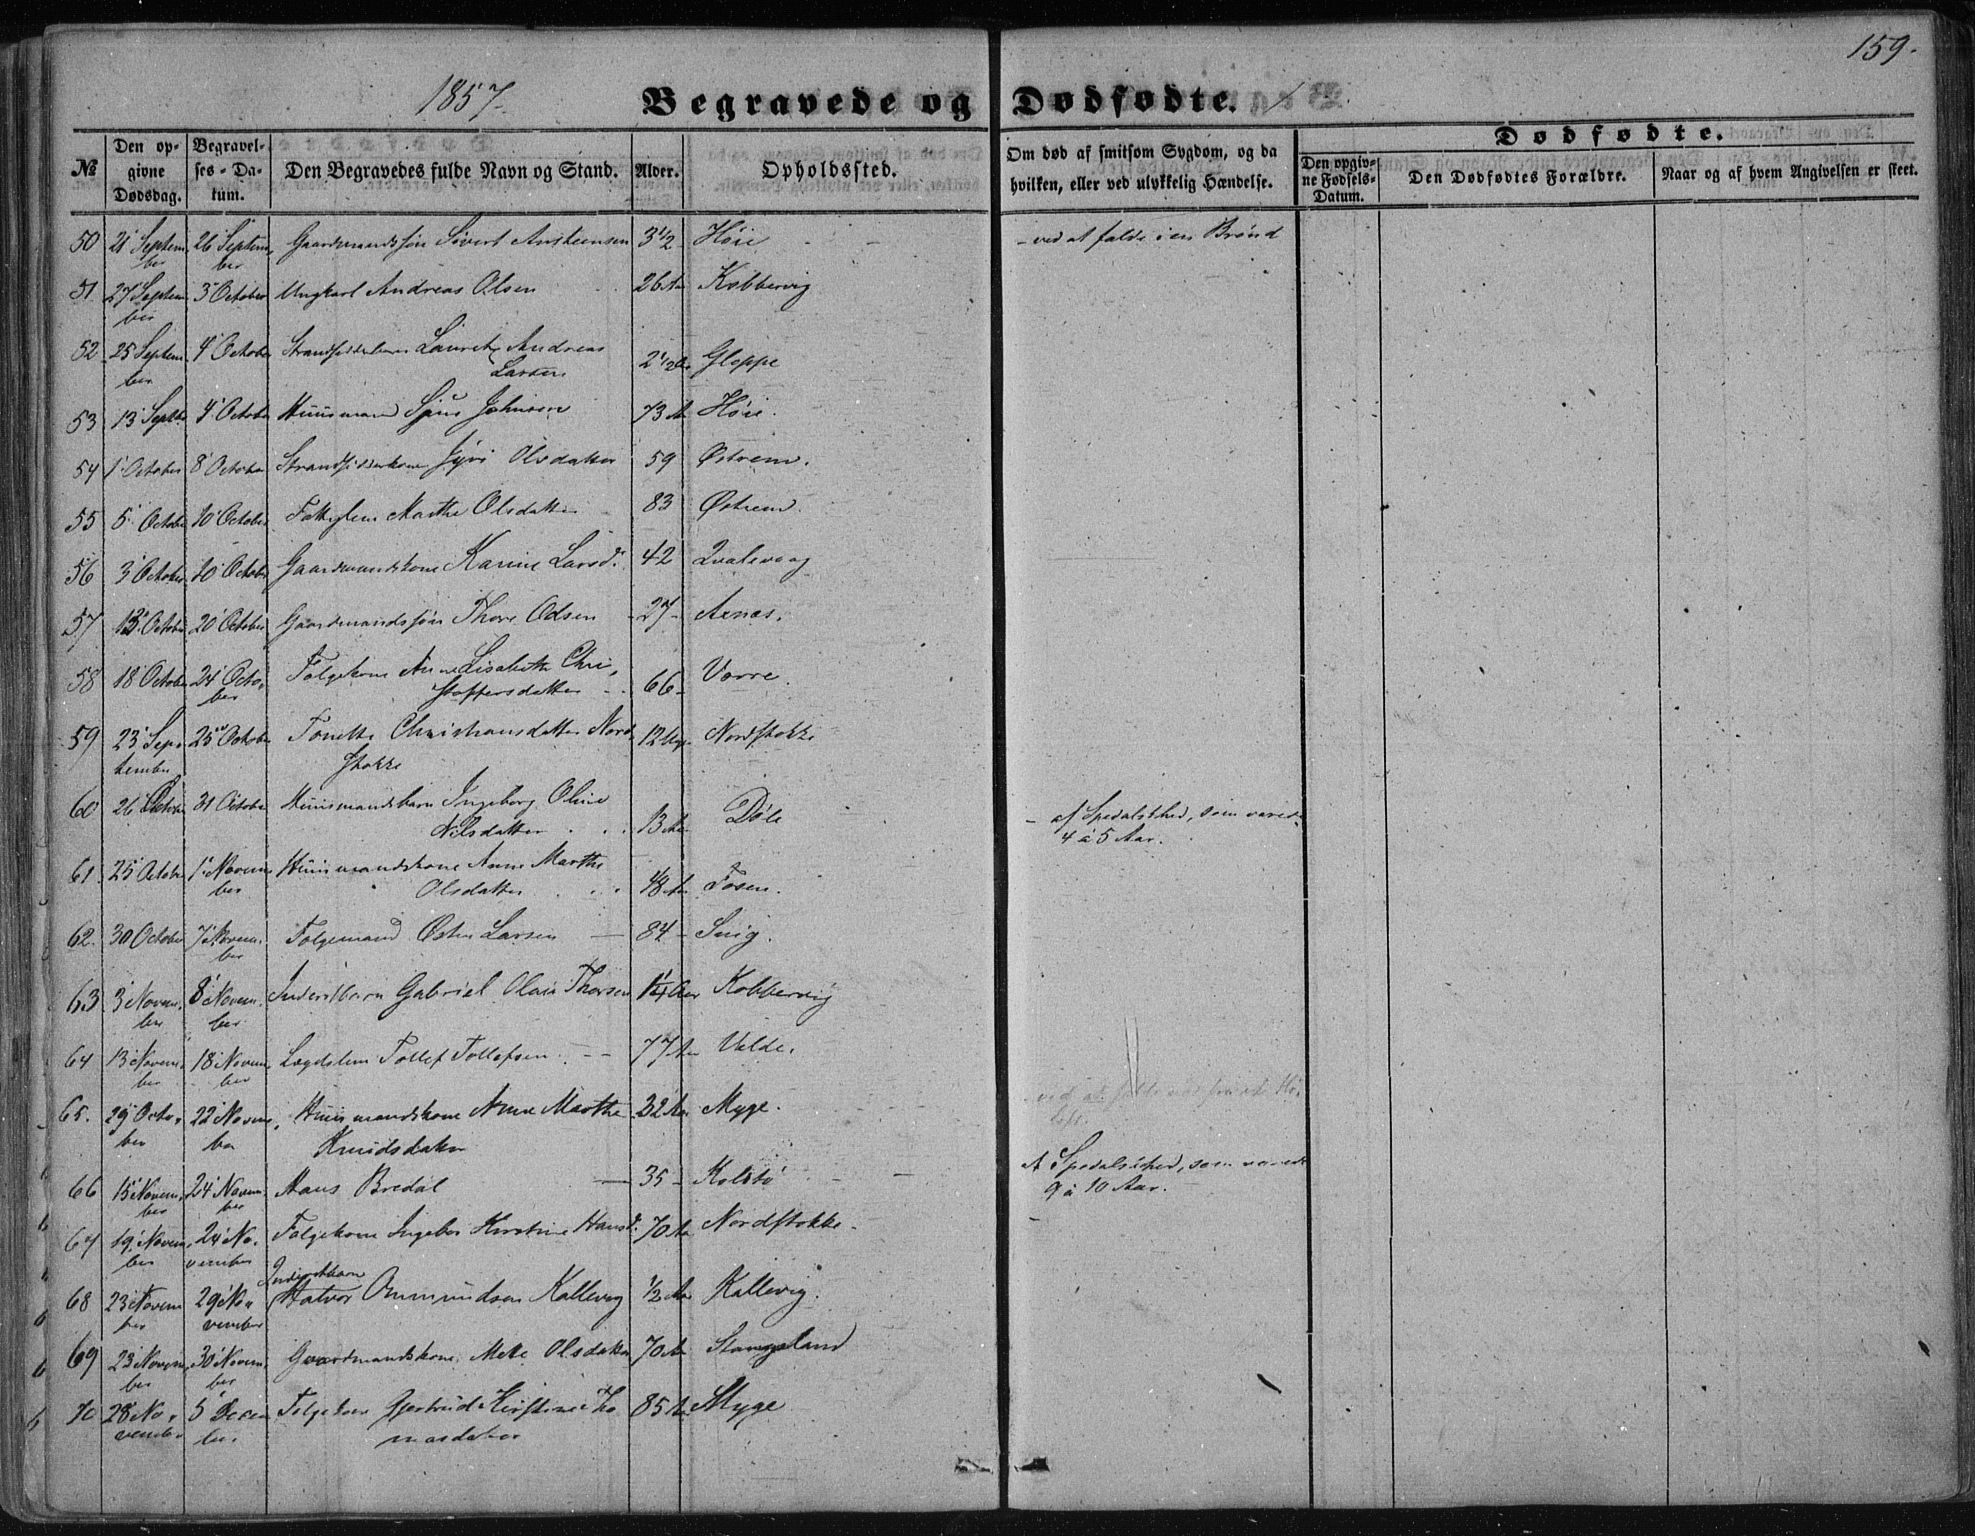 159.
1857. Begravede og Dødfødte.
№ Den opgivne Dødsdag. Begravelses-Datum. Den Begravedes fulde Navn og Stand. Alder. Opholdssted. Om død af smitsom Sygdom, og da hvilken, eller ved ulykkelig Hændelse. Dødfødte. Den opgivne Fødsels-Datum. Den Dødfødtes Forældre. Naar og af hvem Angivelsen er skeet.
50 21 September 26 September Gaardmandssøn Sivert Ansteensen 3½ Høie - ved at falde i en Brønd
51 27 September 3 October Ungkarl Andreas Olsen 26 Aar Kobbervig
52 25 September 4 October Strandsidderbarn Lauritz Andreas Larsen 2½ Aar Gloppe
53 13 Septbr 4 October Huusmand Sjur Johnsen 73 A Høie.
54 1 October 8 October Strandsidderkone Jyri Olsdatter 59 Østrem.
55 5 October 10 October Fattiglem Marthe Olsdatter 83 Østrem
56 3 October 10 October Gaardmandskone Karine Larsd. 42 Qvalevaag
57 15 October 20 October Gaardmandssøn Thore Odsen 27 Aenes.
58 18 October 24 October Følgekone Anne Lisabeth Christoffersdatter 66 Vorre.
59 23 September 25 October Tonette Christiansdatter Nordstokke 12 Uger Nordstokke
60 26 October 31 October Huusmandsbarn Ingeborg Oline Nilsdatter 13 Aar Døle - af Spedalskhed, som varede 4 à 5 Aar.
61. 25 October 1 November Huusmandskone Anne Marthe Olsdatter 48 Aar Fosen.
62. 30 October 7 November Følgemand Østen Larsen 84 - Snig.
63 3 November 8 November Inderstbarn Gabriel Olaus Thorsen 1¼ Aar Kobbervig
64 13 November 18 November Lægdslem Tollef Tollefsen 77 Aar Velde.
65. 29 October 22 November Huusmandskone Anne Marthe Knudsdatter 32 Aar Myge.
66 15 November 24 November Hans Bredal 35 - Kolstø Af Spedalskhed, som varede 9 à 10 Aar.
67 19 November 24 November Følgekone Ingebor Kirstine Hansd. 70 Aar Nordstokke.
68 23 November 29 November Inderstbarn Halvor Ommundsen Kallevig ½ Aar Kallevig.
69 23 November 30 November Gaardmandskone Mete Olsdatter 70 Aar Stangeland
70 28 November 5 December Følgekone Gjertrud Kirstine Thomasdatter 85 Aar Myge